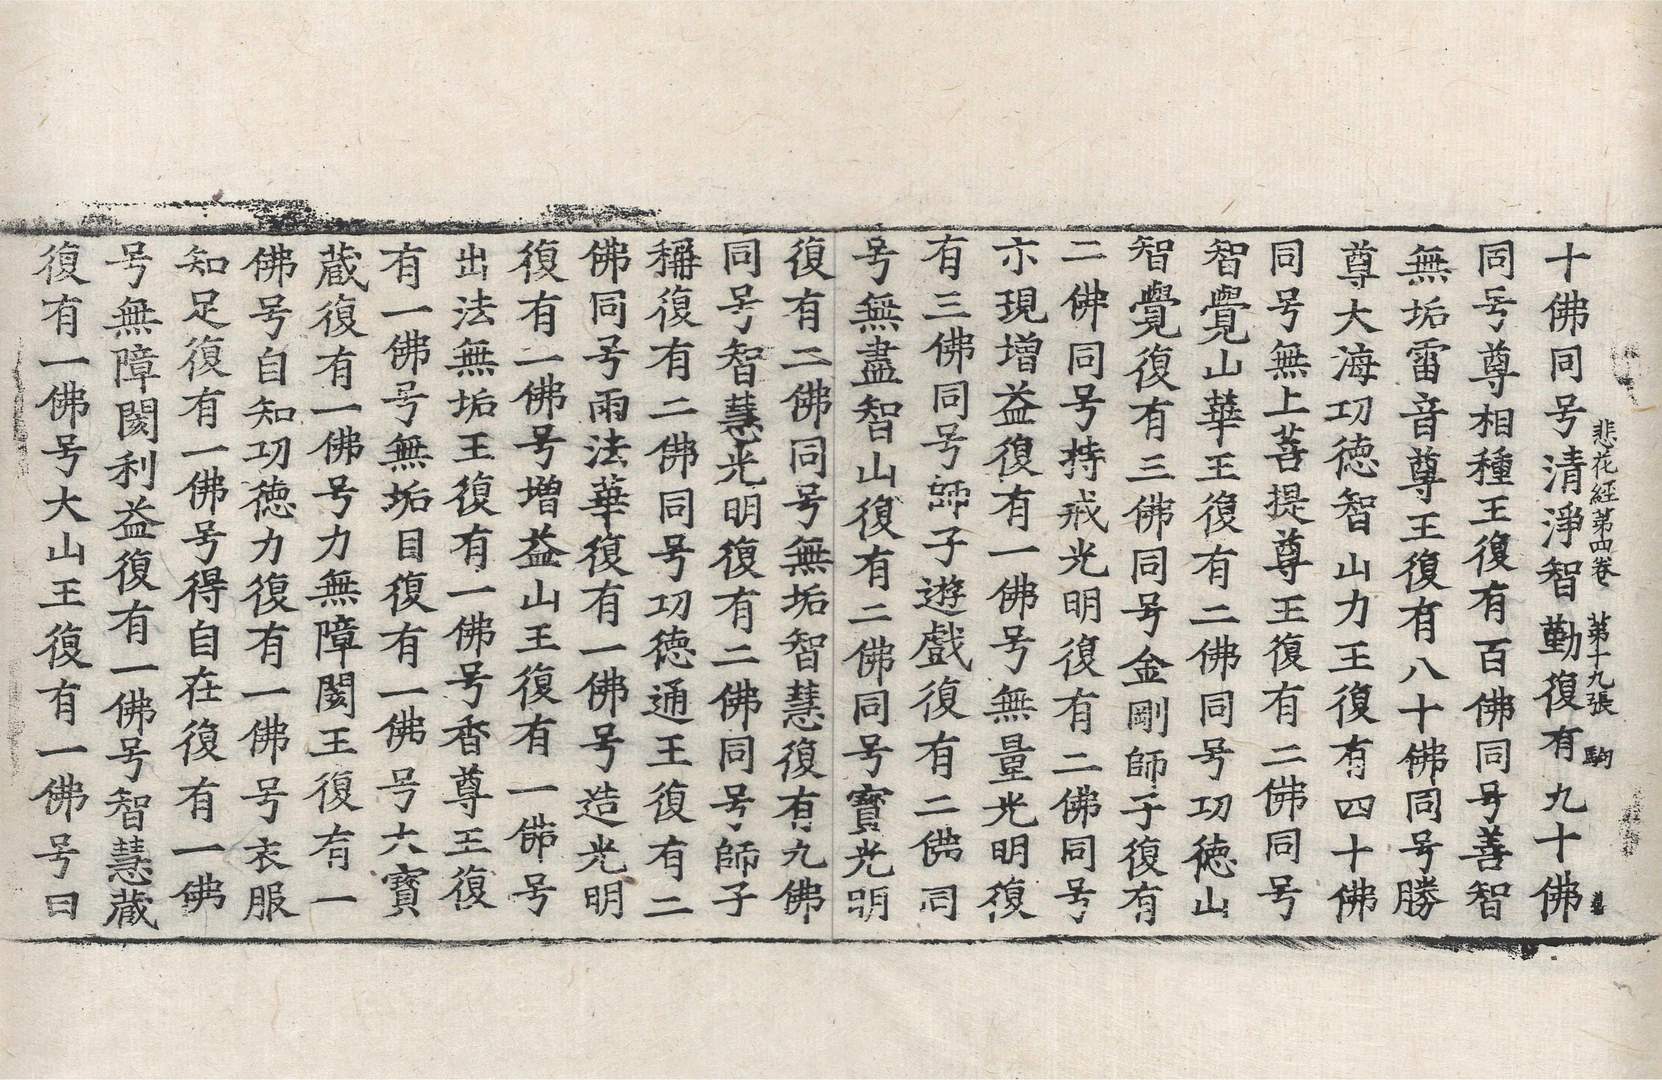 悲花經第四卷 第十九張 駒
十佛同号清淨智勤復有九十佛
同号尊相種王復有百佛同号善智
無垢雷音尊王復有八十佛同号勝
尊大海功徳智山力王復有四十佛
同号無上菩提尊王復有二佛同号
智覺山華王復有二佛同号功徳山
智覺復有三佛同号金剛師子復有
二佛同号持戒光明復有二佛同号
示現增益復有一佛号無量光明復
有三佛同号師子遊戲復有二佛同
号無盡智山復有二佛同号寶光明
復有二佛同号無垢智慧復有九佛
同号智慧光明復有二佛同号師子
稱復有二佛同号功徳通王復有二
佛同号雨法華復有一佛号造光明
復有一佛号增益山王復有一佛号
出法無垢王復有一佛号香尊王復
有一佛号無垢目復有一佛号大寶
藏復有一佛号力無障閡王復有一
佛号自知功徳力復有一佛号衣服
知足復有一佛号得自在復有一佛
号無障閡利益復有一佛号智慧藏
復有一佛号大山王復有一佛号曰